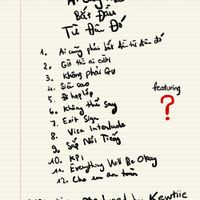 Ai Cũng Phải
Bắt Đầu
Từ Đâu Đó
1. Ai cũng phải bắt đầu từ đâu đó
2. Giờ thì ai cười
3. Không phải gu
4. Siêu cao
5. Đi họp lớp
6. Không thể say
7. Exit Sign
8. Visa Interlude
9. Sắp Nổi Tiếng
10. KPI
11. Everything Will Be Okay
12. Cho em an toàn
featuring
?
by Kewtiie